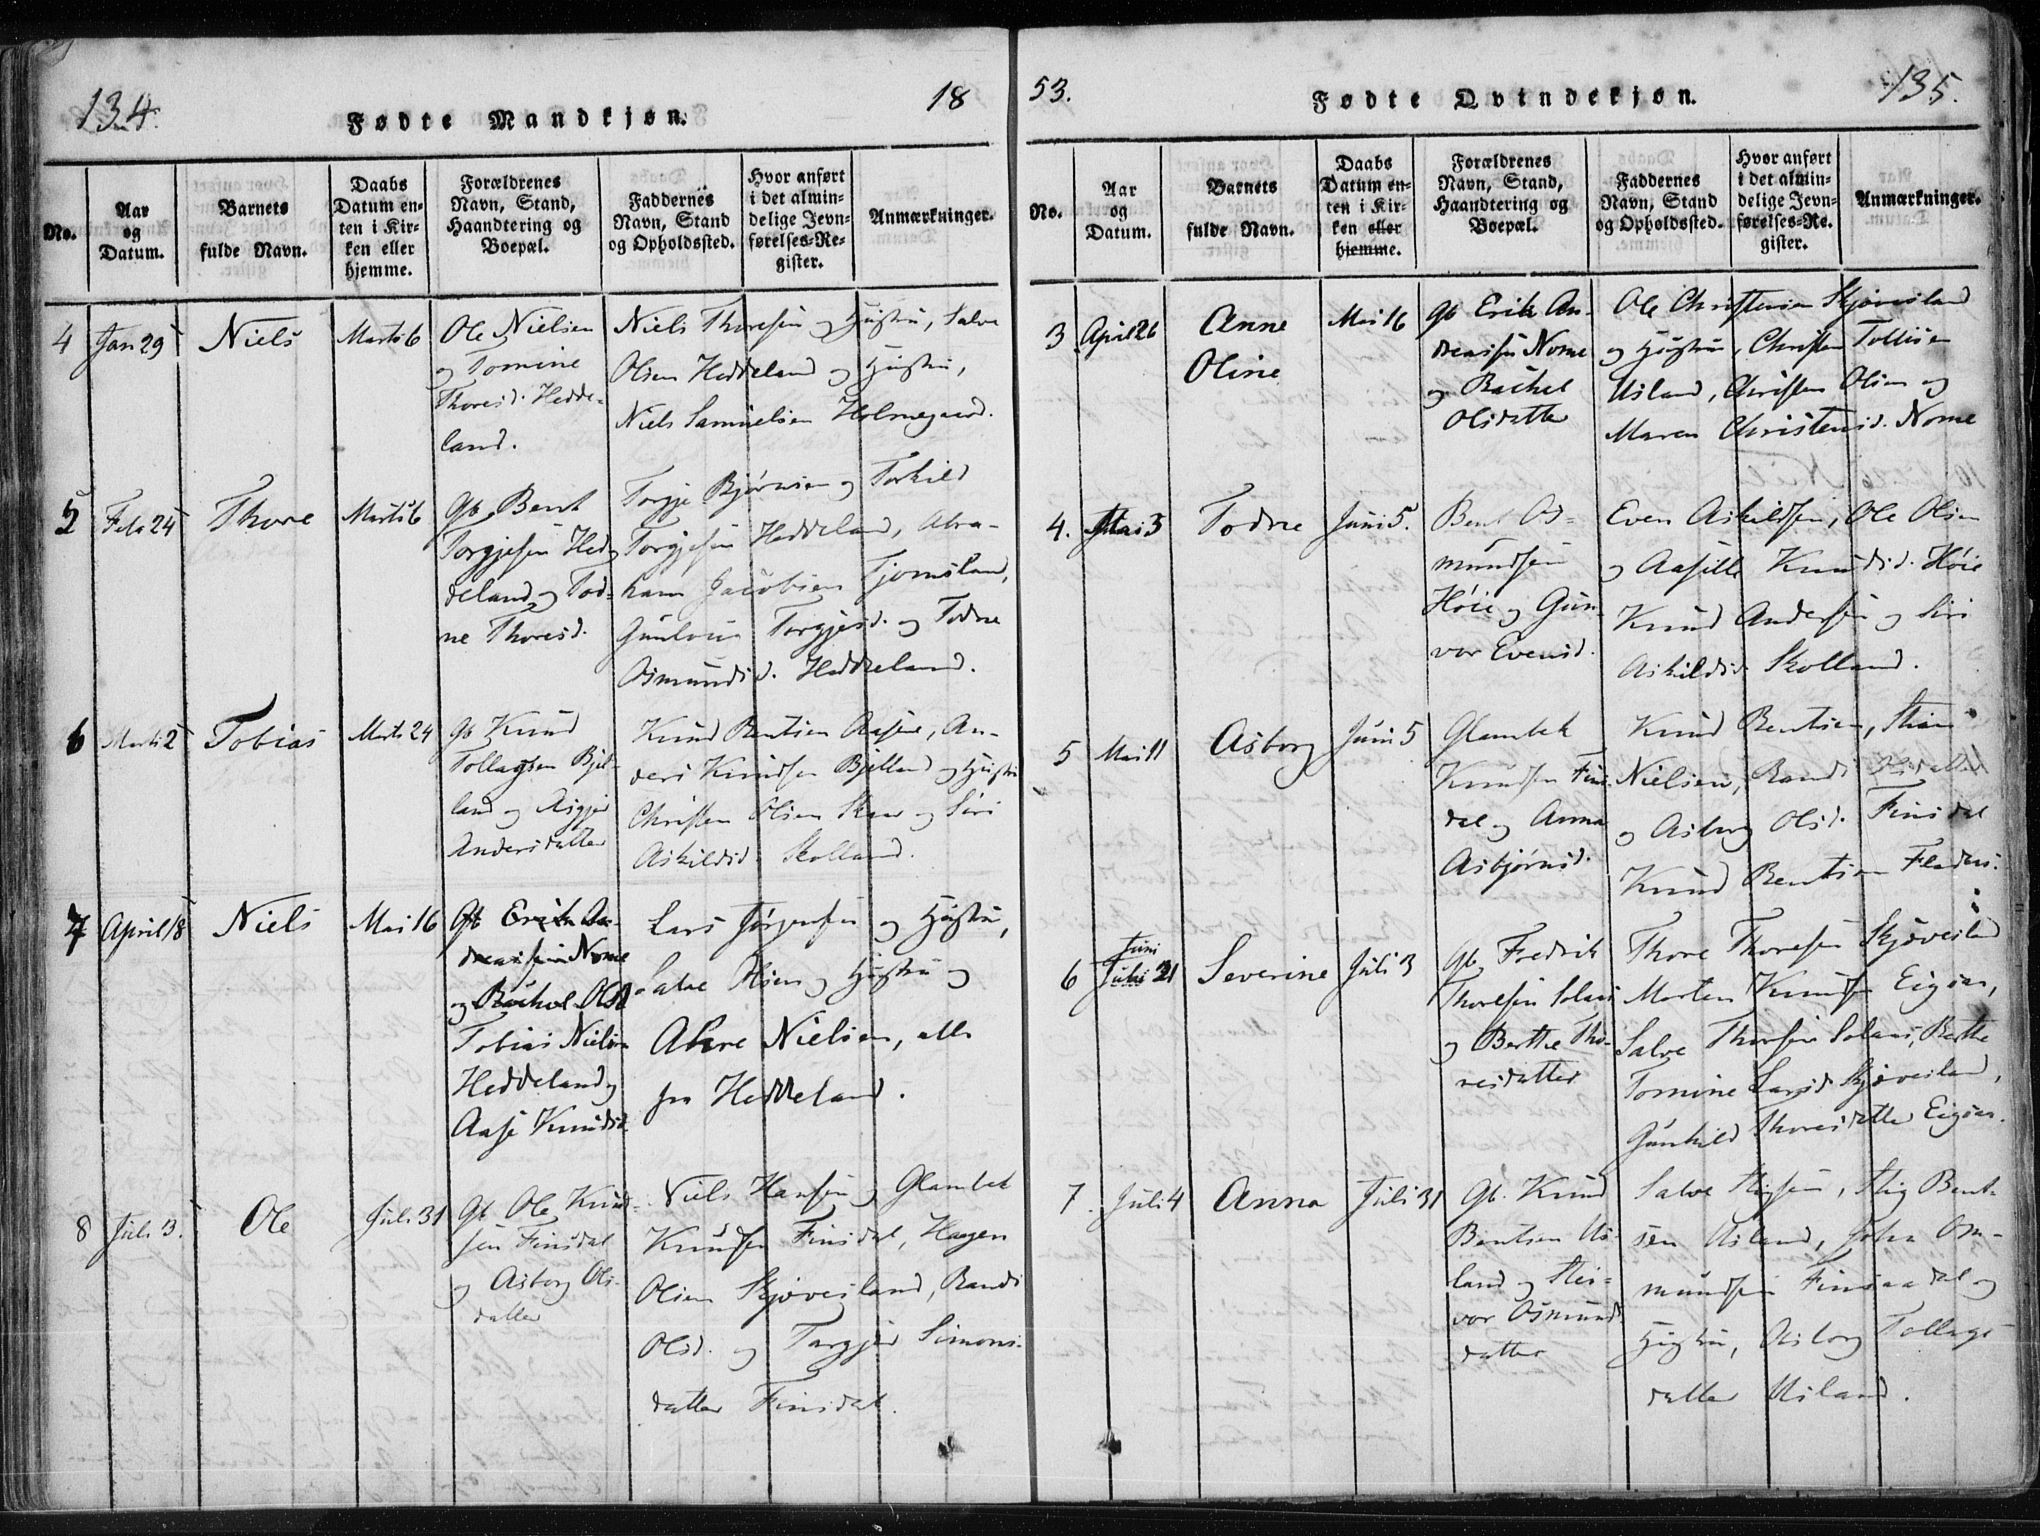 134.
18
Fødte Mandkjøn.
No.
Aar
og
Datum.
Barnets
fulde Navn.
Daabs
Datum en-
ten i Kir-
ken eller
hjemme.
Forældrenes
Navn, Stand,
Haandtering og
Boepæl.
Faddernes
Navn, Stand
og Opholdssted.
Hvor anført
i det almin-
delige Jevn-
førelses-Re-
gister.
Anmærkninger.
4
Jan 29
Niels
Marts 6
Ole Nielsen
og Tomine
Thoresd. Hedde-
land.
Niels Thoresen og Hustru, Salve
Olsen Heddeland og Hustru,
Niels Samuelsen Holmegaard.
5
Feb 24
Thore
Marts 6
Gb. Bent
Torgjesen Hed
deland og Tod-
ne Thoresd.
Torgje Bjørnsen og Torkild
Torgjesen Heddeland, Abra-
ham Jacobsen Tjomsland,
Gunlour Torgjesd. og Todne
Osmundsd. Heddeland.
6
Marts 2
Tobias
Marts 24
Gb Knud
Tollagsen Bjel-
land og Asgjer
Andersdatter
Knud Bentsen Aasen, An-
ders Knudsen Bjelland og Hustru
Christen Olsen Skaar og Siri
Askildsd. Skolland.
7
April 18
Niels
Mai 16
Gb. Erik An-
dreassen Nome
og Rachel Olsd
Tobias Nielsen
Heddeland og
Aase Knudsd.
Lars Jørgensen og Hustru,
Salve Olsen og Hustru og
Ahre Nielsen, alle
fra Heddeland.
8
Juli 3.
Ole
Juli 31
Gb Ole Knud-
sen Finsdal
og Asborg Ols-
datter
Niels Hansen og Glambek
Knudsen Finsdal, Haagen
Olsen Skjøveisland, Randi
Olsd. og Targjer Simons-
datter Finsdal.
53.
135.
Fødte Qvindekjøn.
No.
Aar
og
Datum.
Barnets
fulde Navn.
Daabs
Datum en-
ten i Kir-
ken eller
hjemme.
Forældrenes
Navn, Stand,
Haandtering og
Boepæl.
Faddernes
Navn, Stand
og Opholdssted.
Hvor anført
i det almin-
delige Jevn-
førelses-Re-
gister.
Anmærkninger.
3
April 26
Anne
Oline
Mai 16
Gb Erik An-
dreassen Nome
og Rachel
Olsdatter
Ole Christensen Skjøveisland
og Hustru, Christen Tollisen
Usland, Christen Olsen og
Maren Christensd. Nome
4.
Mai 3
Todne
Juni 5.
Bent Os-
mundsen
Høie og Gun-
vor Evensd.
Even Askildsen, Ole Olsen
og Aasille Knudsd. Høie
Knud Andersen og Siri
Askildsd. Skolland.
5
Mai 11
Asborg
Juni 5
Glambek
Knudsen Fins-
dal og Anna
Asbjørnsd.
Knud Bentsen,
Nielsen, Randi Olsdatter
og Asborg Olsd. Finsdal
Knud Bentsen
6
Juni
Juli 21
Severine
Juli 3
Gb. Fredrik
Thoresen Solaas
og Berthe Tho-
resdatter
Thore Thoresen Skjøveisland
Morten Knudsen Eigaas,
Salve Thoresen Solaas, Berthe
Tomine Larsd. Skjøveisland,
Gunhild Thoresdatter Eigaas.
7.
Juli 4
Anna
Juli 31
Gb. Knud
Bentsen Us-
land og Stei-
vor Osmunds
datter
Salve Stigsen, Stig Bent-
sen Usland, John Os-
mundsen Finsaadal og
Hustru, Asborg Tollags
datter Usland.